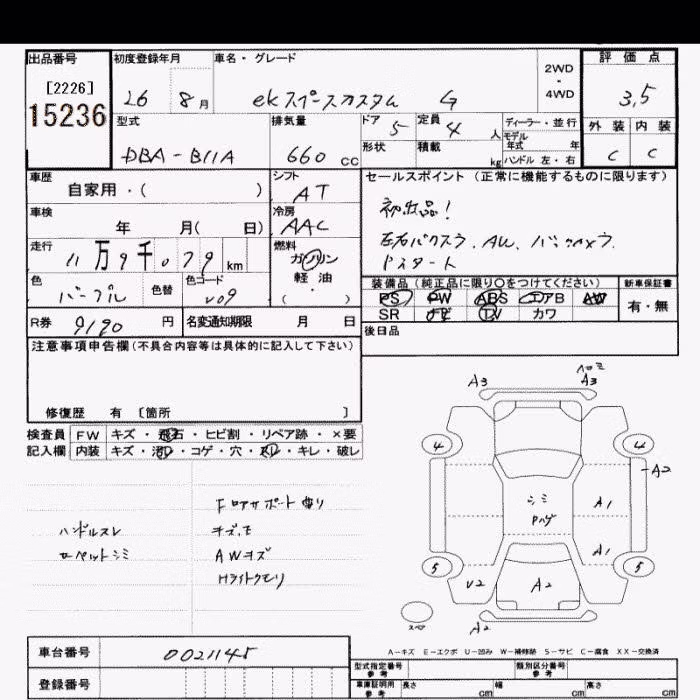 出品番号
[2226]
15236
初度登録年月
26 8月
車名・グレード
ekスペースカスタム G
2WD
・
4WD
評価点
3.5
型式
DBA-B11A
排気量
660 CC
ドア 5
定員 4 人
形状
積載 kg
ディーラー・並行
モデル年式 年
ハンドル 左・右
外装 内装
C C
車歴
自家用・( )
シフト
AT
車検
年 月( 日)
冷房
AAC
走行
11万9千079 km
燃料
ガソリン
軽油
( )
色
パープル
色替
色コード
V09
R券 9190 円
名変通知期限 月 日
セールスポイント(正常に機能するものに限ります)
初出品!
左右パワスラ、AW、バックカメラ
Pスタート
装備品(純正品に限り○をつけてください)
PS PW ABS エアB AW
SR ナビ TV カワ
新車保証書
有・無
後日品
注意事項申告欄(不具合内容等は具体的に記入して下さい)
修復歴 有 〔箇所 〕
検査員 FW キズ・飛石・ヒビ割・リペア跡・×要
記入欄 内装 キズ・汚れ・コゲ・穴・スレ・キレ・破レ
ハンドルスレ
カーペットシミ
Fロアサポート曲り
キズ、モ
AWキズ
Hライトクモリ
A3
ヘコミ
A3
4 4
A2
シミ
Pハゲ
A1
A1
5 5
U2
A2
スペア
A2
A-キズ E-エクボ U-凹み W-補修跡 S-サビ C-腐食 XX-交換済
車台番号 0021145
登録番号
型式指定番号
参考
類別区分番号
参考
車庫証明用
参考
長さ cm 幅 cm 高さ cm